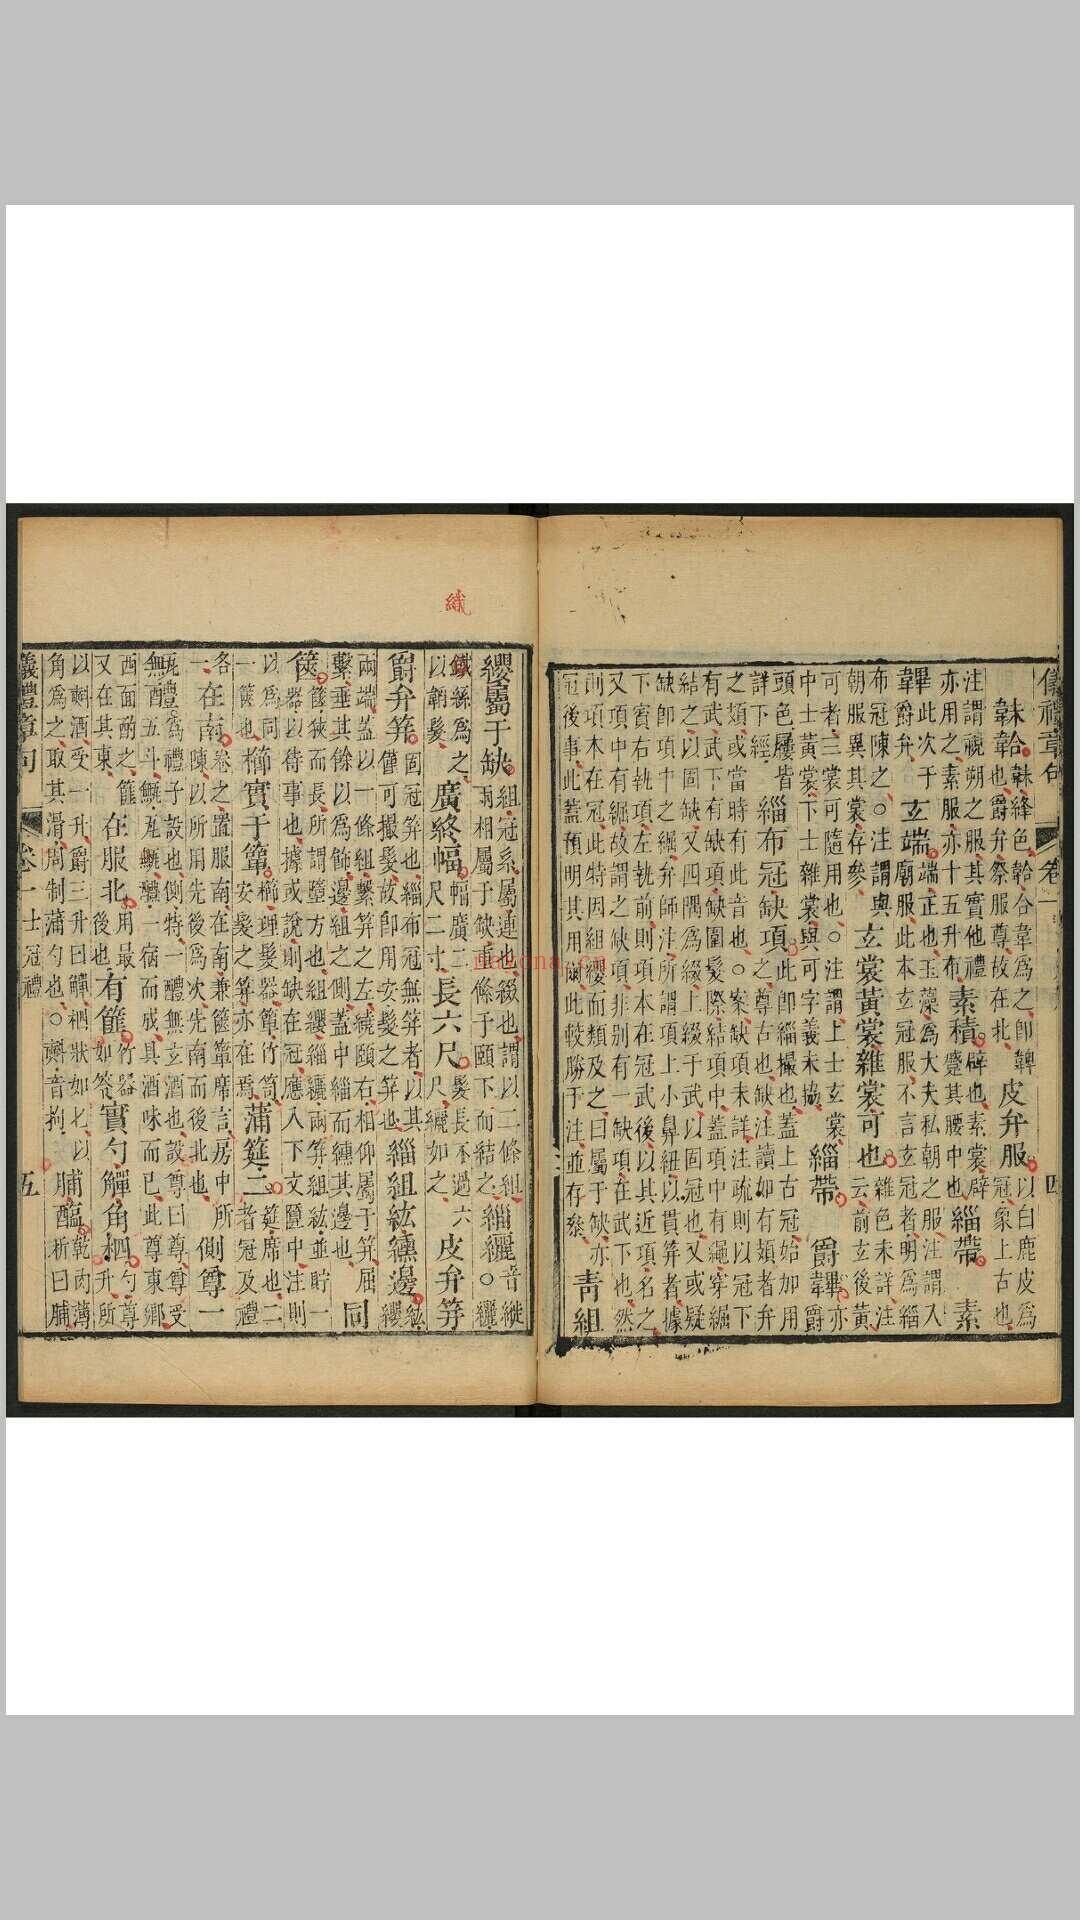 儀禮章句
卷一
四
韎韐
韎絳色韐合韋爲之卽韠
韋也爵弁祭服尊故在北
皮弁服
以白鹿皮爲
冠象上古也
注謂視朔之服其實他禮
亦用之素服亦十五升布
素積
辟也素辟
蹙其腰中也
緇帶
素
韠
此次于
爵弁
玄端
端正也玉藻爲大夫私朝之服注謂入
廟服此本玄冠服不言玄冠者明爲緇
布冠陳之○注謂與
朝服異其裳存參
玄裳黃裳雜裳可也
雜色未詳注
云前玄後黃
可者三裳可隨用也○注謂上士玄裳
中士黃裳下士雜裳與可字義未協
緇帶
爵韠
亦
爵
韋
頭色屨皆
詳下經
緇布冠缺項
此卽緇撮也蓋上古冠始加用
之尊古也缺注讀如有頍者弁
之頍或當時有此音也○案缺項未詳注疏則以冠下
有武武下有缺項缺圍髮際結項中蓋項中有繩穿繃
結之以固缺又四隅爲綴上綴于武以固冠也又或疑
缺卽項中之繃弁師注所謂項上小鼻紐以貫笄者據
下賓右執項左執前則項本在冠武後以其近項名之
又項中有繃故謂之缺項非別有一缺項在武下也然
則項木在冠此特因組纓而類及之曰屬于缺亦
冠後事此蓋預明其用爾此較勝于注並存叅
青組
纓屬于缺
組冠系屬連也綴也謂以二條組
兩相屬于缺垂條于頤下而結之
緇纚
○音縰
纚
織絲爲之
以韜髮
廣終幅
幅廣二
尺二寸
長六尺
髮長不過六
尺纚如之
皮弁笄
爵弁笄
固冠笄也緇布冠無笄者以其
僅可撮髮故卽用安髮之笄也
緇組紘纁邊
紘
纓
兩端蓋以一條組繫笄之左繞頤右相仰屬于笄屈
繫垂其餘以爲飾邊組之側蓋中緇而纁其邊也
同
篋
篋狹而長所謂隋方也組纓緇纚兩笄組紘並貯一
器以待事也據或說則缺在冠應入下文匴中注則
以爲同
一篋也
櫛實于簞
櫛理髮器簞竹笥
安髮之笄亦在焉
蒲筵二
筵席也二
者冠及禮
各
一
在南
卷之置服南在南兼篋簞席言房中所
陳以所用先後爲次先南而後北也
側尊一
甒醴
爲禮子設也側特一醴無玄酒也設尊曰尊尊受
無酺五斗觚瓦觚醴一宿而成具酒味而已此尊東鄉
西面酌之
又在其東
篚
在服北
用最
後也
有篚
竹器
如笭
實勺觶角柶
勺尊
升所
以㪺酒受一升爵三升曰觶柶狀如匕以
角爲之取其滑周制蒲勺也○㪺音拘
脯醢
乾肉薄
析曰脯
儀禮章句
卷一
士冠禮
五
織